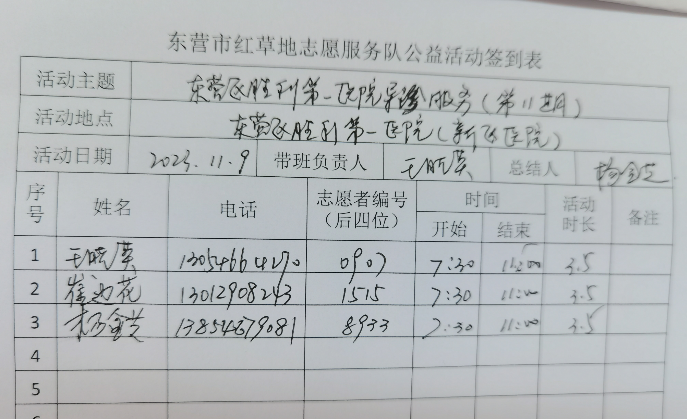 东营市红草地志愿服务队公益活动签到表
活动主题 东营区胜利第一医院导诊服务(第11期)
活动地点 东营区胜利第一医院(新区医院)
活动日期 2023.11.9 带班负责人 王晓英 总结人
序号 姓名 电话 志愿者编号(后四位) 时间 活动时长 备注
开始 结束
1 王晓英 13054664270 0907 7:30 11:00 3.5
2 13012908243 1515 7:30 11:00 3.5
3 13854679081 8933 7:30 11:00 3.5
4
5